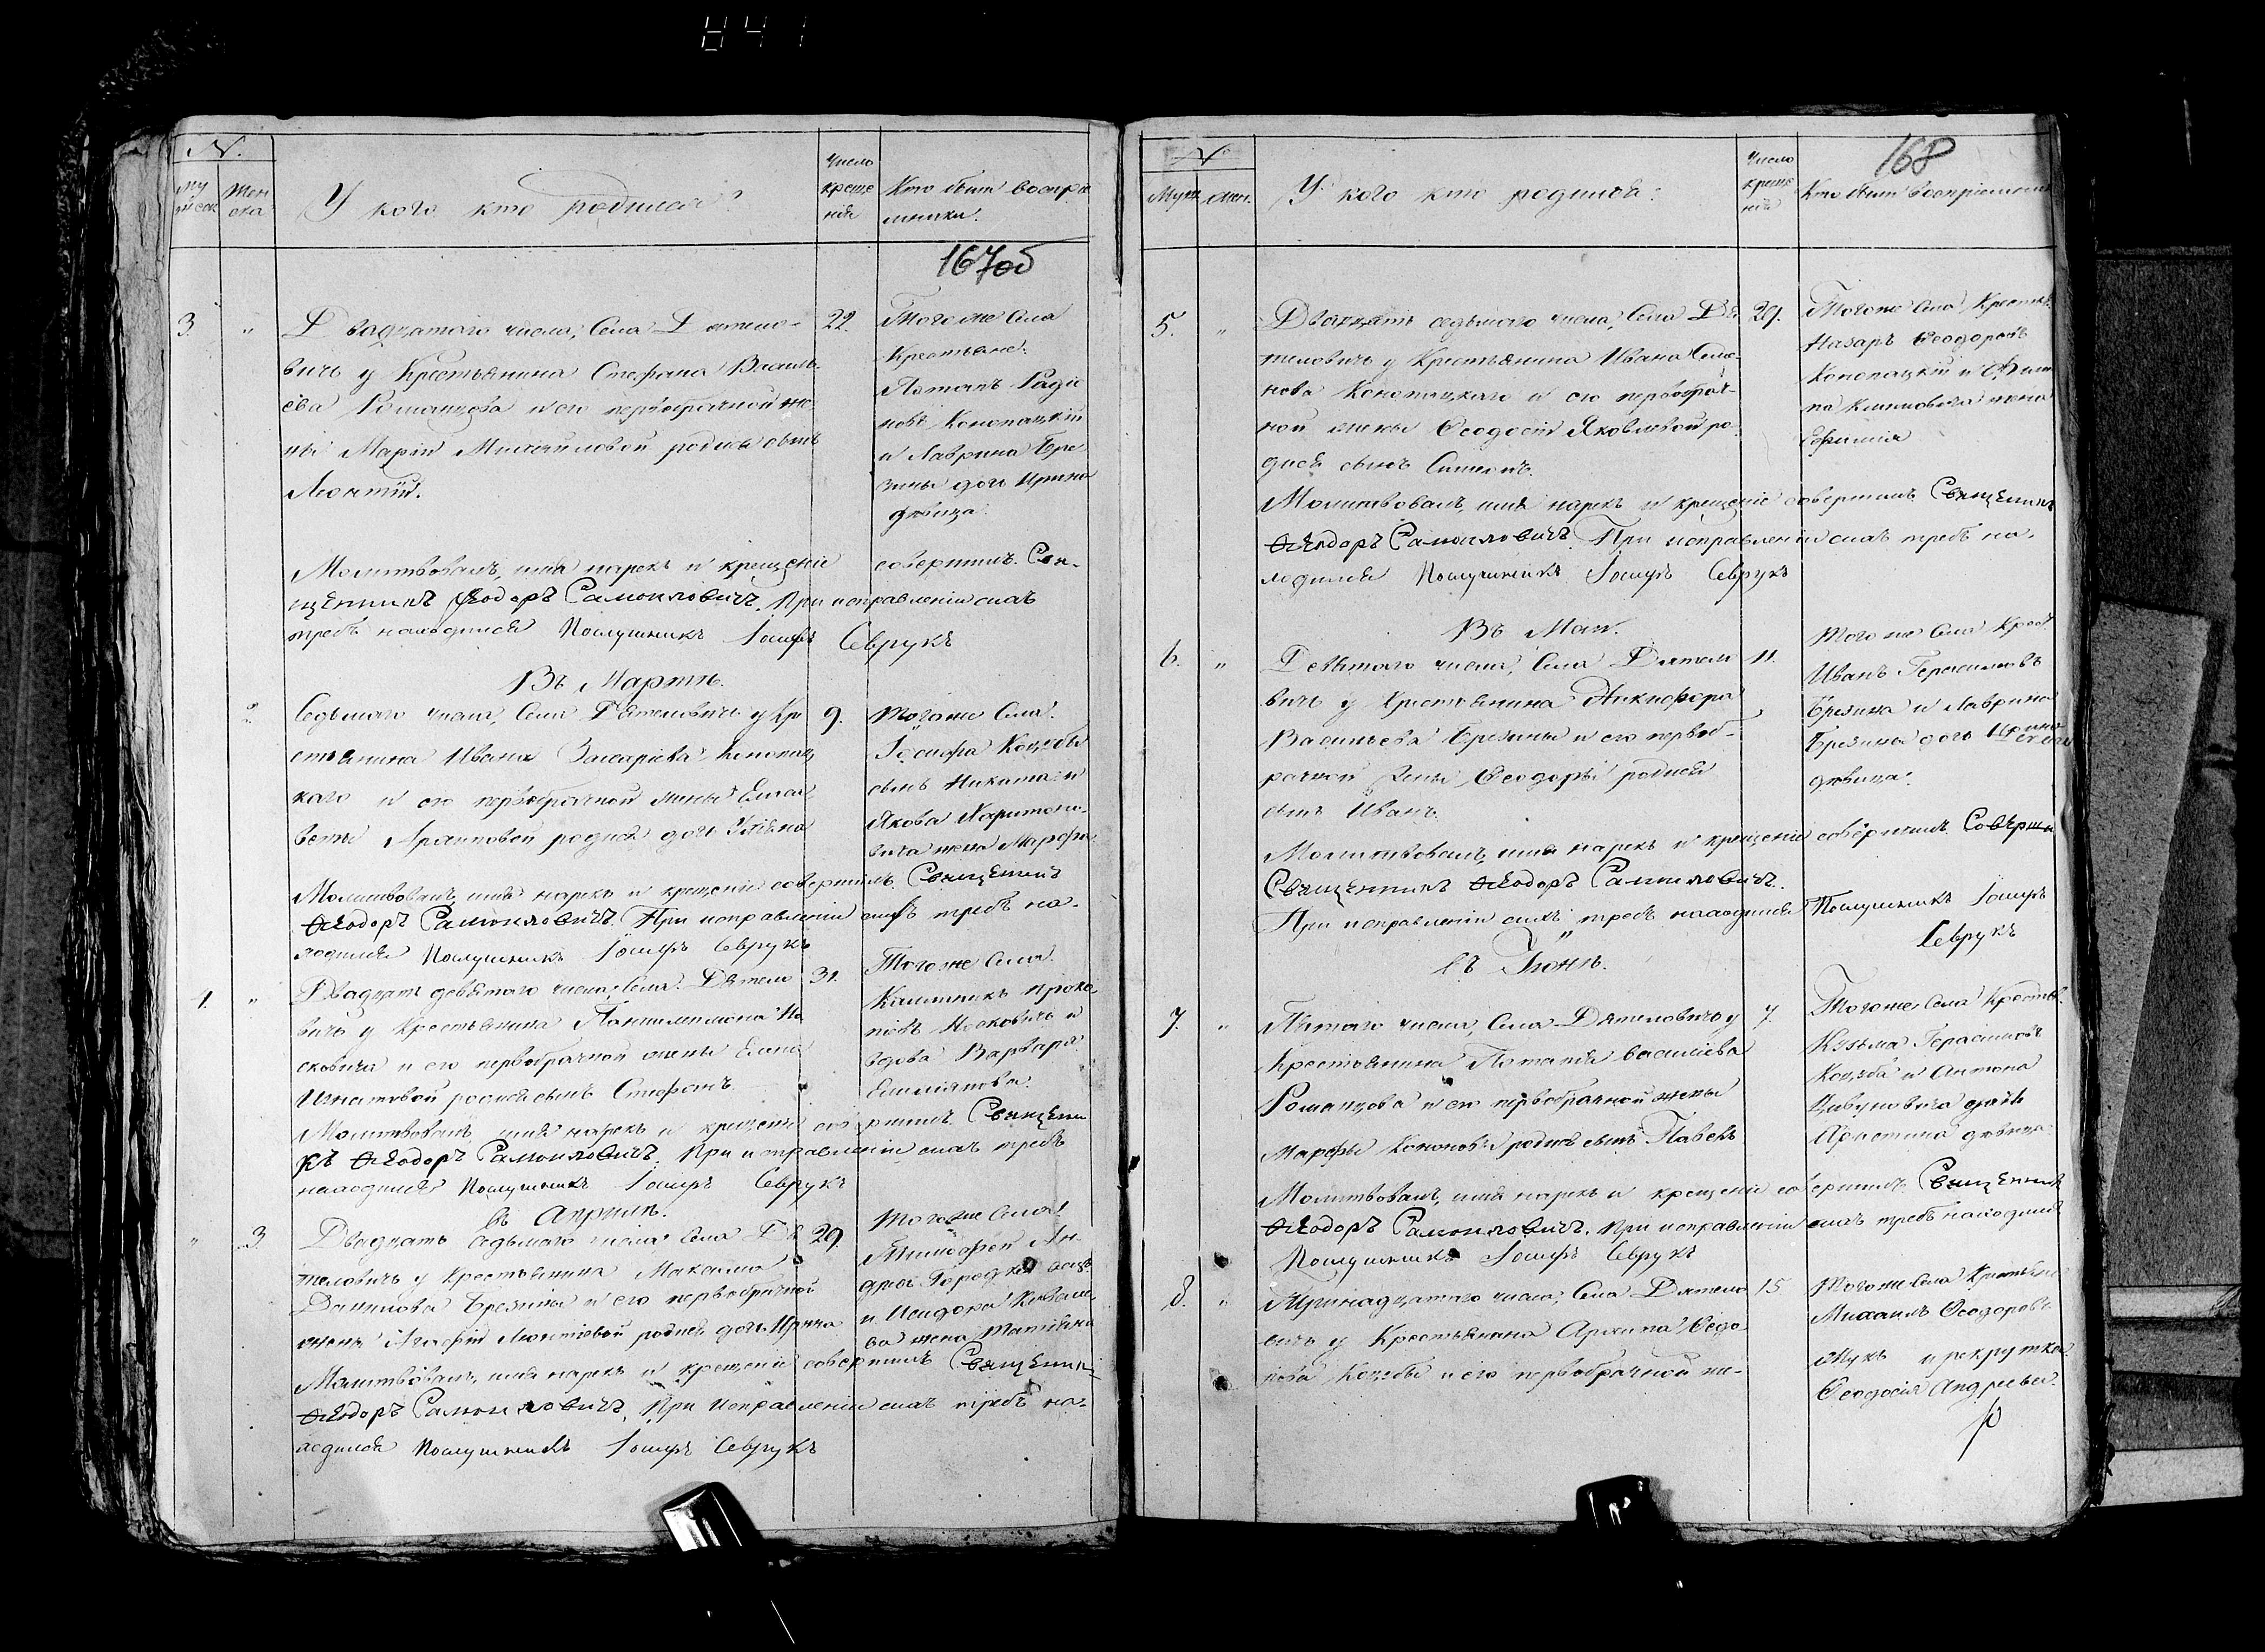 841
N.
Му жеск Жен ска
У кого кто родился?
Число креще нія
Кто были воспрі емники.
167об
3. " Двадцатого числа, Села Дятело- 22.
вичь у Крестьянина Стефана Василь-
ева Романцова и его первобрачной же
ны Маріи Михайловой родися сынъ
Леонтій.
Тогоже Села
Крестьяне:
Потапъ Радіо
новъ Конопацкій
и Лаврина Бре
зины дочь Ирина
девица.
Молитвовалъ, имя нарекъ и крещеніе совершилъ Свя-
щенникъ Ѳеодоръ Самойловичъ. При исправленіи сихъ
требъ находился Послушникъ Іосифъ Севрукъ
Въ Мартѣ.
2. Седьмаго числа, Села Дятеловичь у Кре 9.
стьянина Ивана Захаріева Конопац
каго и его первобрачной жены Елиса
веты родися дочь Уліяна
Тогоже Села.
Іосифа Коцубы
сынъ Никита и
Якова Харитоно-
вича жена Марфа
Молитвовалъ, имя нарекъ и крещеніе совершилъ Священикъ
Ѳеодоръ Самойловичъ. При исправленіи сихъ требъ на-
ходился Послушникъ Іосифъ Севрукъ
4. " Двадцать девятого числа, Села Дятело 31.
вичь у Крестьянина Пантилимона Но
сковича и его первобрачной жены Елены
Игнатовой родися сынъ Стефанъ
Тогоже Села
Калинникъ Проко
повъ Носковичь и
вдова Варвара
Емиліянова.
Молитвовалъ, имя нарекъ и крещеніе совершилъ Священи
къ Ѳеодоръ Самойловичъ. При исправленіи сихъ требъ
находился Послушникъ Іосифъ Севрукъ
въ Апрѣлѣ.
" 3. Двадцать седьмаго числа Села Дя 29.
теловичь у Крестьянина Максима
Данилова Брезины и его первобрачной
жены Агафіи Леонтіевой родися дочь Ирина
Тогоже Села
Тимофей Ан-
дрея
и Исидора
ва жена Татіяна
Молитвовалъ, имя нарекъ и крещеніе совершилъ Священик
Ѳеодоръ Самойловичъ. При исправленіи сихъ требъ на-
ходился Послушникъ Іосифъ Севрукъ
N
168
Муж. Жен.
У кого кто родился:
Число креще нія
Кто были воспріемники
5. " Двадцать седьмого числа, Села Дя 29.
теловичь у Крестьянина Ивана Семе-
нова Конопацкаго и его первобрач-
ной жены Ѳеодосіи Яковлевой ро-
дися сынъ Симеонъ.
Тогоже Села Крестьян.
Назаръ Ѳеодоровъ
Конопацкій и Фили
па Климовича жена
Евфимія
Молитвовалъ, имя нарекъ и крещеніе совершилъ Священикъ
Ѳеодоръ Самойловичъ. При исправленіи сихъ требъ на-
ходился Послушникъ Іосифъ Севрукъ
Въ Маѣ.
6. " Девятого числа, Села Дятело 11.
вичь у Крестьянина Никифора
Васильева Брезины и его первоб-
рачной жены Ѳеодоры родися
сынъ Иванъ.
Тогоже Села Крест.
Иванъ Герасимовъ
Брезина и Лаврина
Брезины дочь
девица.
Молитвовалъ, имя нарекъ и крещеніе совершилъ Соверши
Священникъ Ѳеодоръ Самойловичъ.
При исправленіи сихъ требъ находился Послушникъ Іосифъ
Севрукъ
въ Іюнѣ.
7. " Пятого числа, Села Дятеловичь у 7.
Крестьянина Потапія Василіева
Романцова и его первобрачной жены
Марфы Кононовы родися сынъ Павелъ
Тогоже Села Крестья.
Кузьма Герасимовъ
Коцуба и Антона
дочь
Христина девица
Молитвовалъ, имя нарекъ и крещеніе совершилъ Священникъ
Ѳеодоръ Самойловичъ. При исправленіи сихъ требъ находился
Послушникъ Іосифъ Севрукъ
8. " Тринадцатого числа, Села Дятело 15
вичь у Крестьянина Архипа Ѳедо
рова Коцубы и его первобрачной же-
Тогоже Села Крестьяне
Михаилъ Ѳеодоровъ
Жукъ и рекрутка
Ѳеодосія Андреева.